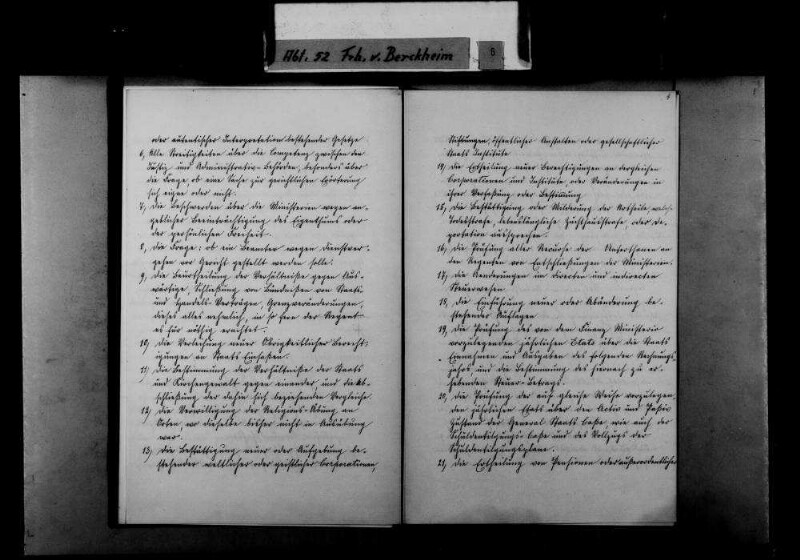 Abt. 52 Frh. v. Berckheim
6
oder autentischer Interpretation bestehender Gesetze
6, Alle Streitigkeiten über die Competenz zwischen den
Justiz- und Administrativ-Behörden, besonders über
die Frage ob eine Sache zur gerichtlichen Erörterung
sich eigne oder nicht.
7, die Beschwerden über die Ministerien wegen an-
geblicher Beeinträchtigung des Eigenthums oder
der persönlichen Freiheit.
8, die Frage: ob ein Beamter wegen Dienstver-
gehen vor Gericht gestellt werden solle.
9, die Beurtheilung der Verhältnisse gegen Aus-
wärtige, Schließung von Bündnissen von Staats-
und Handels-Verträgen, Grenzveränderungen,
dieses alles nehmlich, in so fern der Regent
es für nöthig erachtet.
10, die Verleihung neuer Obrigkeitlicher Berecht-
igungen an Staats Einsassen.
11, die Bestimmung der Verhältnisse der Staats
und Kirchengewalt gegen einander, und die Ab-
schließung der dahin sich beziehenden Vergleiche.
12, die Bewilligung der Religions-Übung an
Orten wo dieselbe bisher nicht in Ausübung
war.
13, die Bestättigung neuer oder Aufhebung be-
stehender weltlicher oder geistlicher Corporationen,
Stiftungen, öffentlicher Anstalten oder gesellschaftlicher
Staats Institute
14, die Ertheilung neuer Berechtigungen an dergleichen
Corporationen und Institute, oder Veränderungen in
ihrer Verfassung oder Bestimmung
15, die Bestättigung oder Milderung der Urtheile, welche
Todesstrafe, lebenslängliche Zuchthausstrafe, oder De-
portation aussprechen.
16, die Prüfung aller Recurse der Unterthanen an
den Regenten von Entschließungen der Ministerien.
17, die Aenderungen in directen und indirecten
Steuerwesen
18, die Einführung neuer oder Abänderung be-
stehender Auflagen
19, die Prüfung des von dem Finanz Ministerio
vorzulegenden jährlichen Etats über die Staats
Einnahmen und Ausgaben des folgenden Rechnungs
jahrs, und die Bestimmung des hiernach zu er-
hebenden Steuer-Betrags.
20, die Prüfung der auf gleiche Weise vorzulegen-
den jährlichen Etats über den Activ und Passiv
Zustand der General Staats Casse, wie auch der
Schuldentilgungs-Casse und des Vollzugs des
Schuldentilgungsplans.
21, die Ertheilung von Pensionen oder außerordentlicher